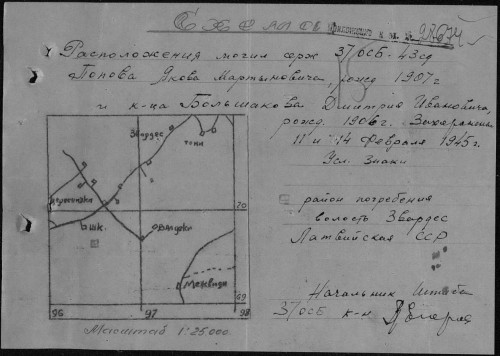 Расположения могил серж 37 осб - 43 сд
Попова Якова Мартыновича, рожд 1907 г
и к-на Большакова Дмитрия Ивановича,
рожд. 1906 г. Захоронены
11 и 14 февраля 1945 г.
Усл. знаки
район погребения
волость Звардес
Латвийская ССР
Начальник Штаба
37 осб к-н
Звардес
тони
Бшк.
Межвиди
70
69
96
97
98
Масштаб 1:25.000